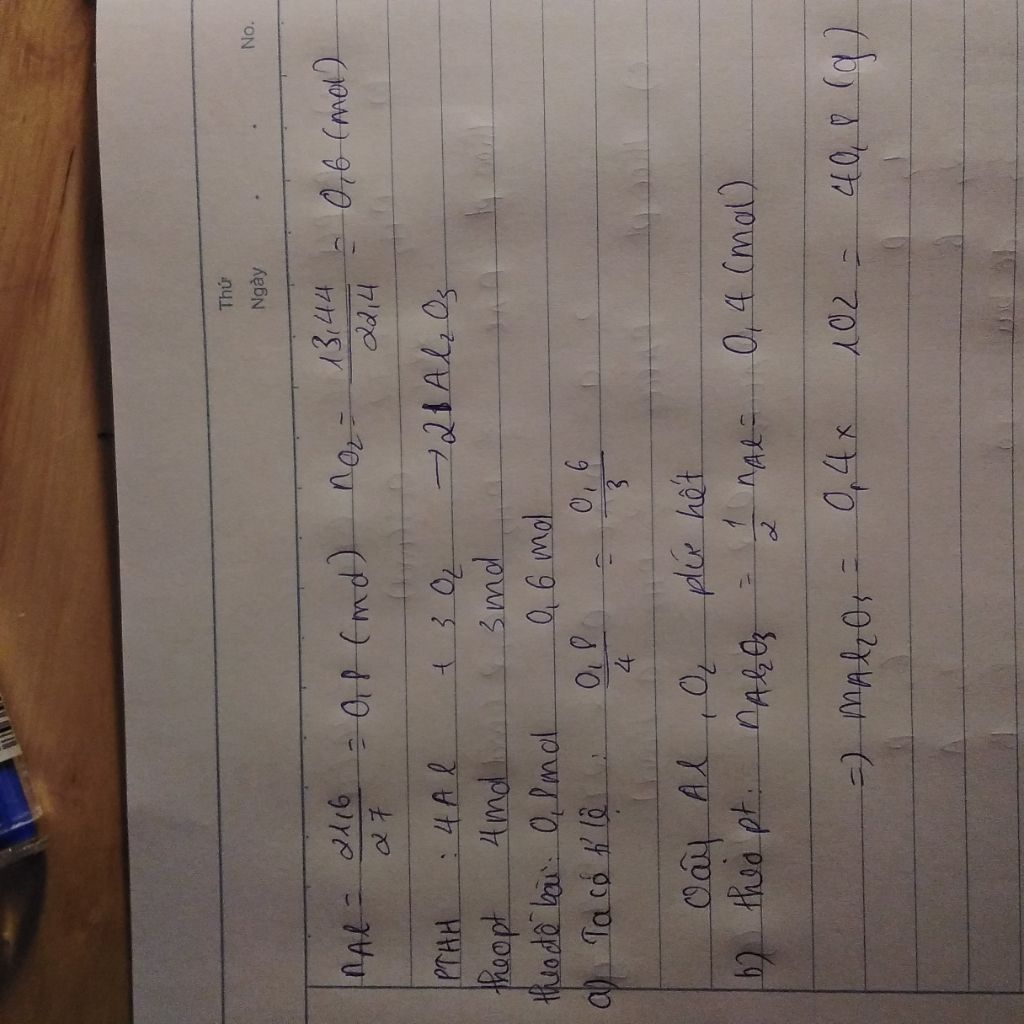 Thứ
Ngày
No.
nAl = 21,6/27 = 0,8 (mol) nO2 = 13,44/22,4 = 0,6 (mol)
PTHH : 4Al + 3O2 → 2Al2O3
theo pt 4mol 3mol
theo đề bài: 0,8mol 0,6 mol
a) Ta có tỉ lệ : 0,8/4 = 0,6/3
Vậy Al , O2 pứ hết
b) theo pt. nAl2O3 = 1/2 nAl = 0,4 (mol)
=> mAl2O3 = 0,4 x 102 = 40,8 (g)